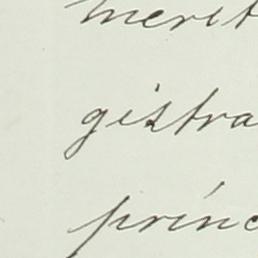 merit
gistra
princ